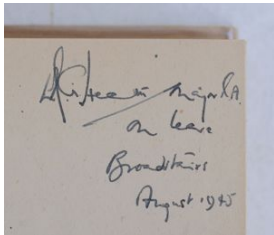 Major R.A.
on leave
Broadstairs
August 1945